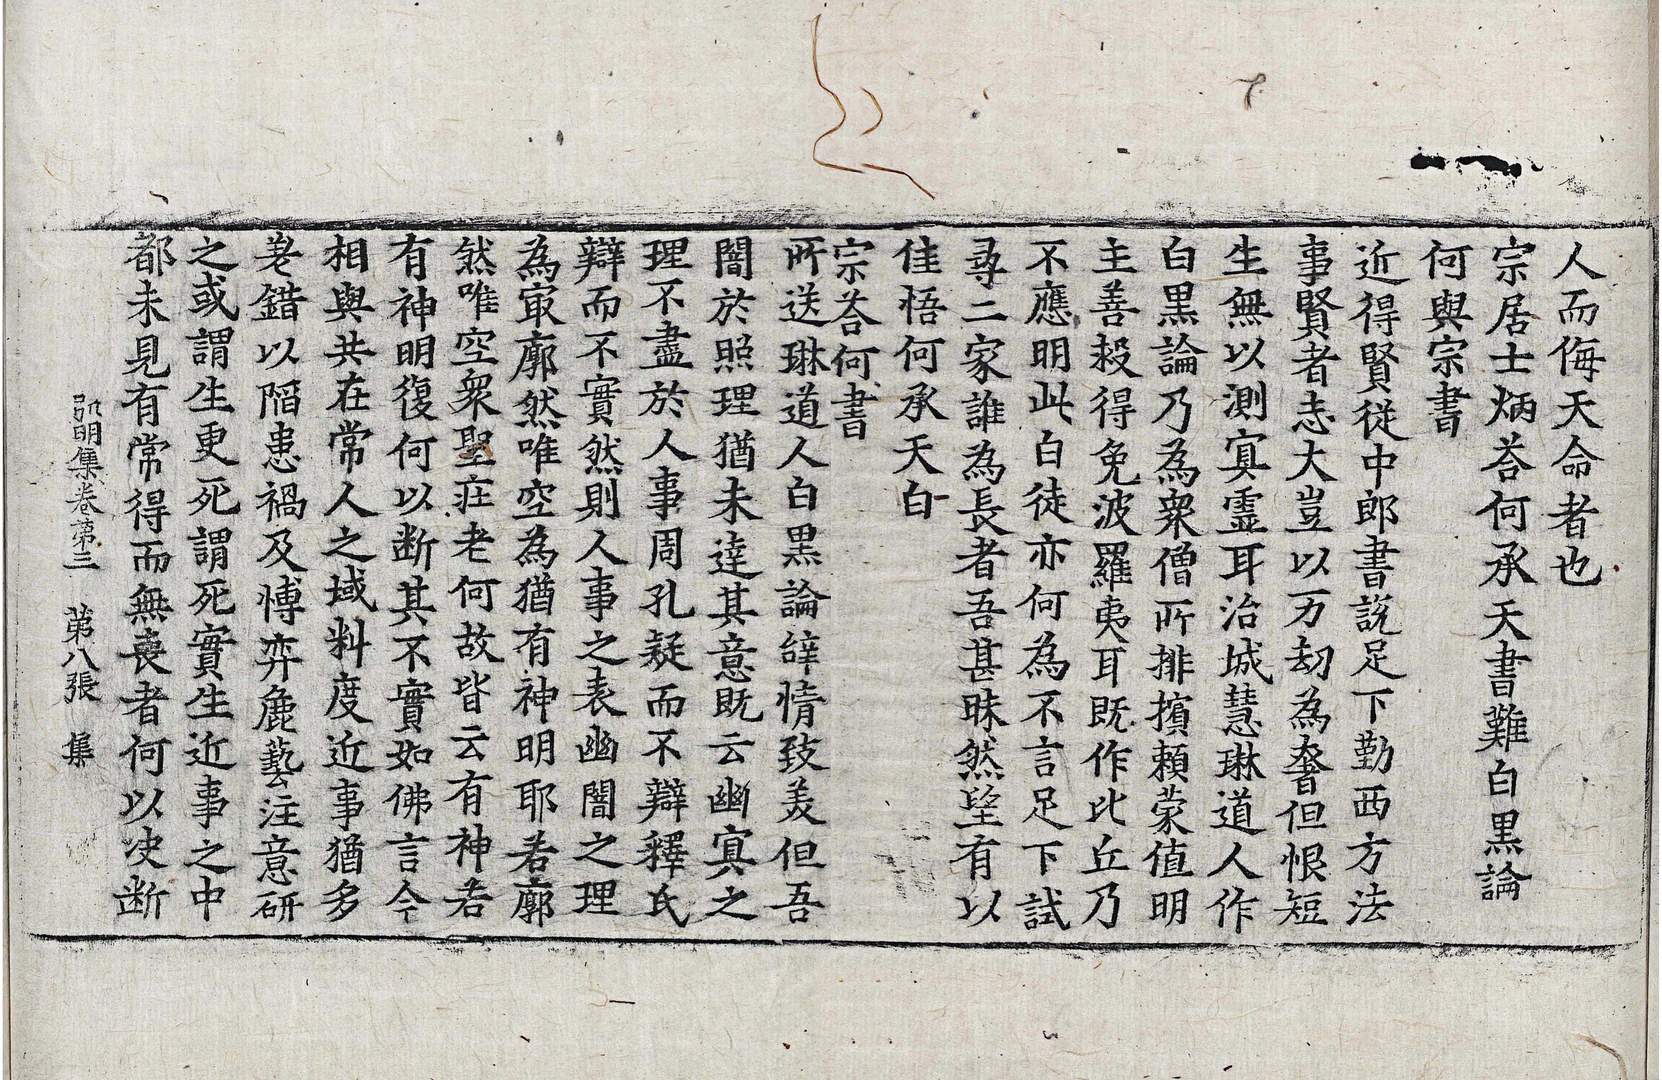 人而侮天命者也
宗居士炳荅何承天書難白黑論
何與宗書
近得賢從中郎書說足下勤西方法
事賢者志大豈以万劫為奢但恨短
生無以測冥靈耳治城慧琳道人作
白黑論乃為衆僧所排擯頼蒙值明
主善救得免波羅夷耳既作比丘乃
不應明此白徒亦何為不言足下試
尋二家誰為長者吾甚昧然望有以
佳悟何承天白
宗荅何書
所送琳道人白黑論辝情致美但吾
闇於照理猶未達其意既云幽冥之
理不盡於人事周孔疑而不辯釋氏
辯而不實然則人事之表幽闇之理
為㝡廓然唯空為猶有神明耶若廓
然唯空衆聖莊老何故皆云有神若
有神明復何以断其不實如佛言今
相與共在常人之域料度近事猶多
差錯以陷患禍及慱弈麁藝注意研
之或謂生更死謂死實生近事之中
都未見有常得而無喪者何以決断
弘明集卷第三 第八張 集